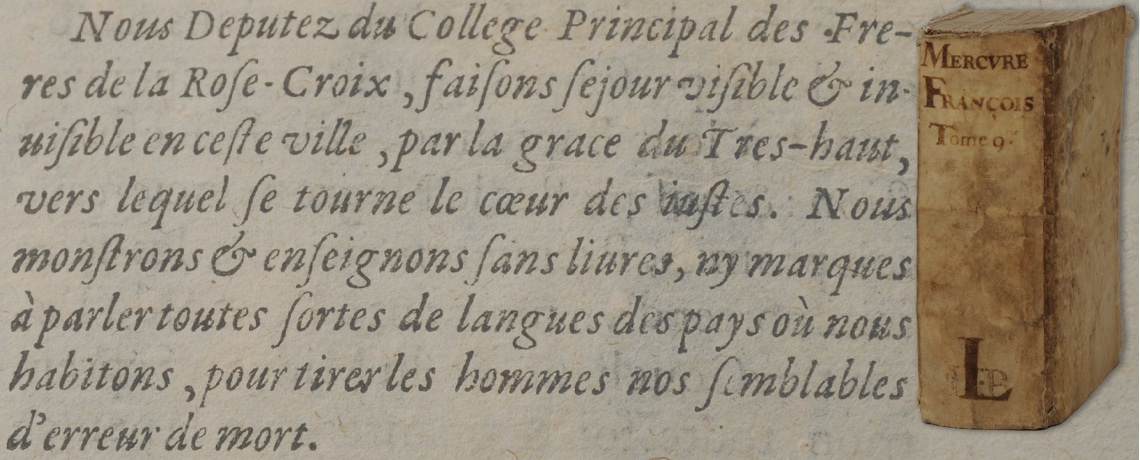 Nous Deputez du College Principal des Fre-
res de la Roſe-Croix, faiſons ſejour viſible & in-
uiſible en ceſte ville, par la grace du Tres-haut,
vers lequel ſe tourne le cœur des iuſtes. Nous
monſtrons & enſeignons ſans liures, ny marques
à parler toutes ſortes de langues des pays où nous
habitons, pour tirer les hommes nos ſemblables
d'erreur de mort.
MERCVRE
FRANÇOIS
Tome 9
L